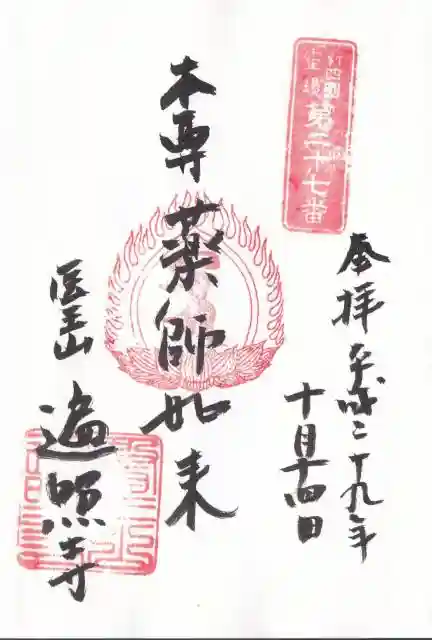 四国
霊場
第二十七番
奉拝
平成二十九年
十月十四日
本尊
薬師如来
医王山
遍照寺